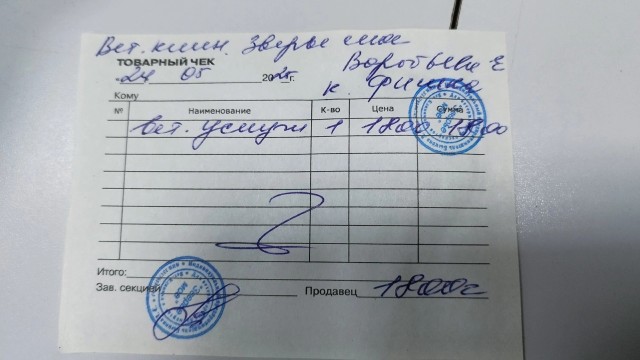 Вет. клин. Зверье мое
ТОВАРНЫЙ ЧЕК Воробьева Е
24 05 2025г. к. Фишка
Кому
№ Наименование К-во Цена Сумма
вет. услуги 1 1800 1800
Итого:
Зав. секцией Продавец 1800